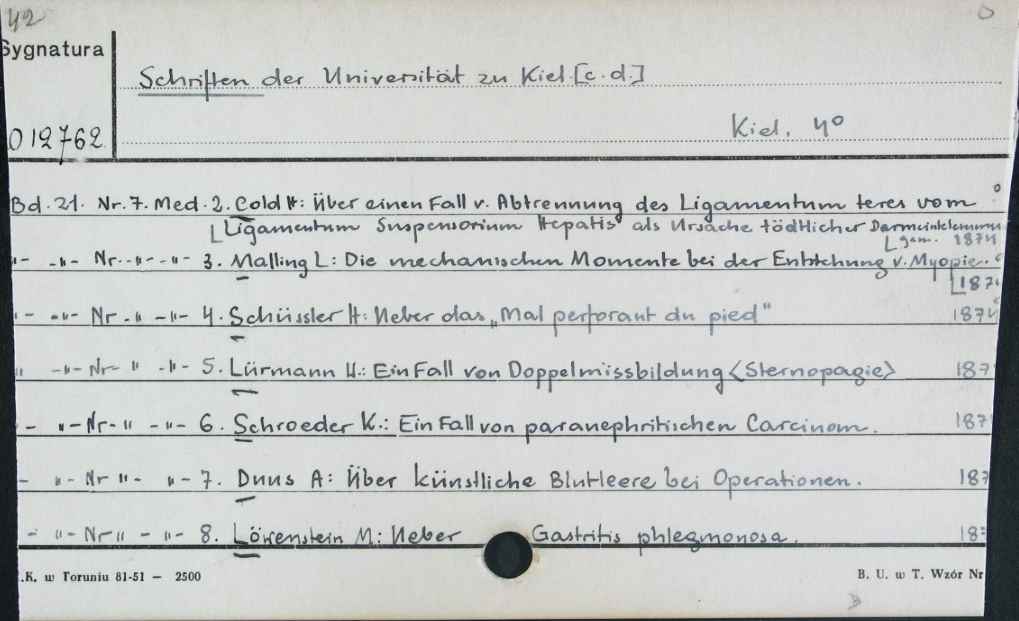 42
Sygnatura
Schriften der Universität zu Kiel [c.d.]
012762
Kiel, 4°
Bd. 21. Nr. 7. Med. 2. Cold H: Über einen Fall v. Abtrennung des Ligamentum teres vom
Ligamentum Suspensorium Hepatis als Ursache tödtlicher
187
" - -"- Nr.-"- -"- 3. Malling L: Die mechanischen Momente bei der Entstehung v. Myopie.
187
" - -"- Nr -"- -"- 4. Schüssler H: Ueber das „Mal perforant du pied" 187
" -"- Nr- " -"- 5. Lürmann H.: Ein Fall von Doppelmissbildung <Sternopagie> 187
- "- Nr- " -"- 6. Schroeder K.: Ein Fall von paranephritischen Carcinom. 187
- "- Nr "- "- 7. Duus A: Über künstliche Blutleere bei Operationen. 187
- "- Nr " - "- 8. Löwenstein M: Ueber Gastritis phlegmonosa. 18
.K. w Toruniu 81-51 — 2500 B. U. w T. Wzór Nr